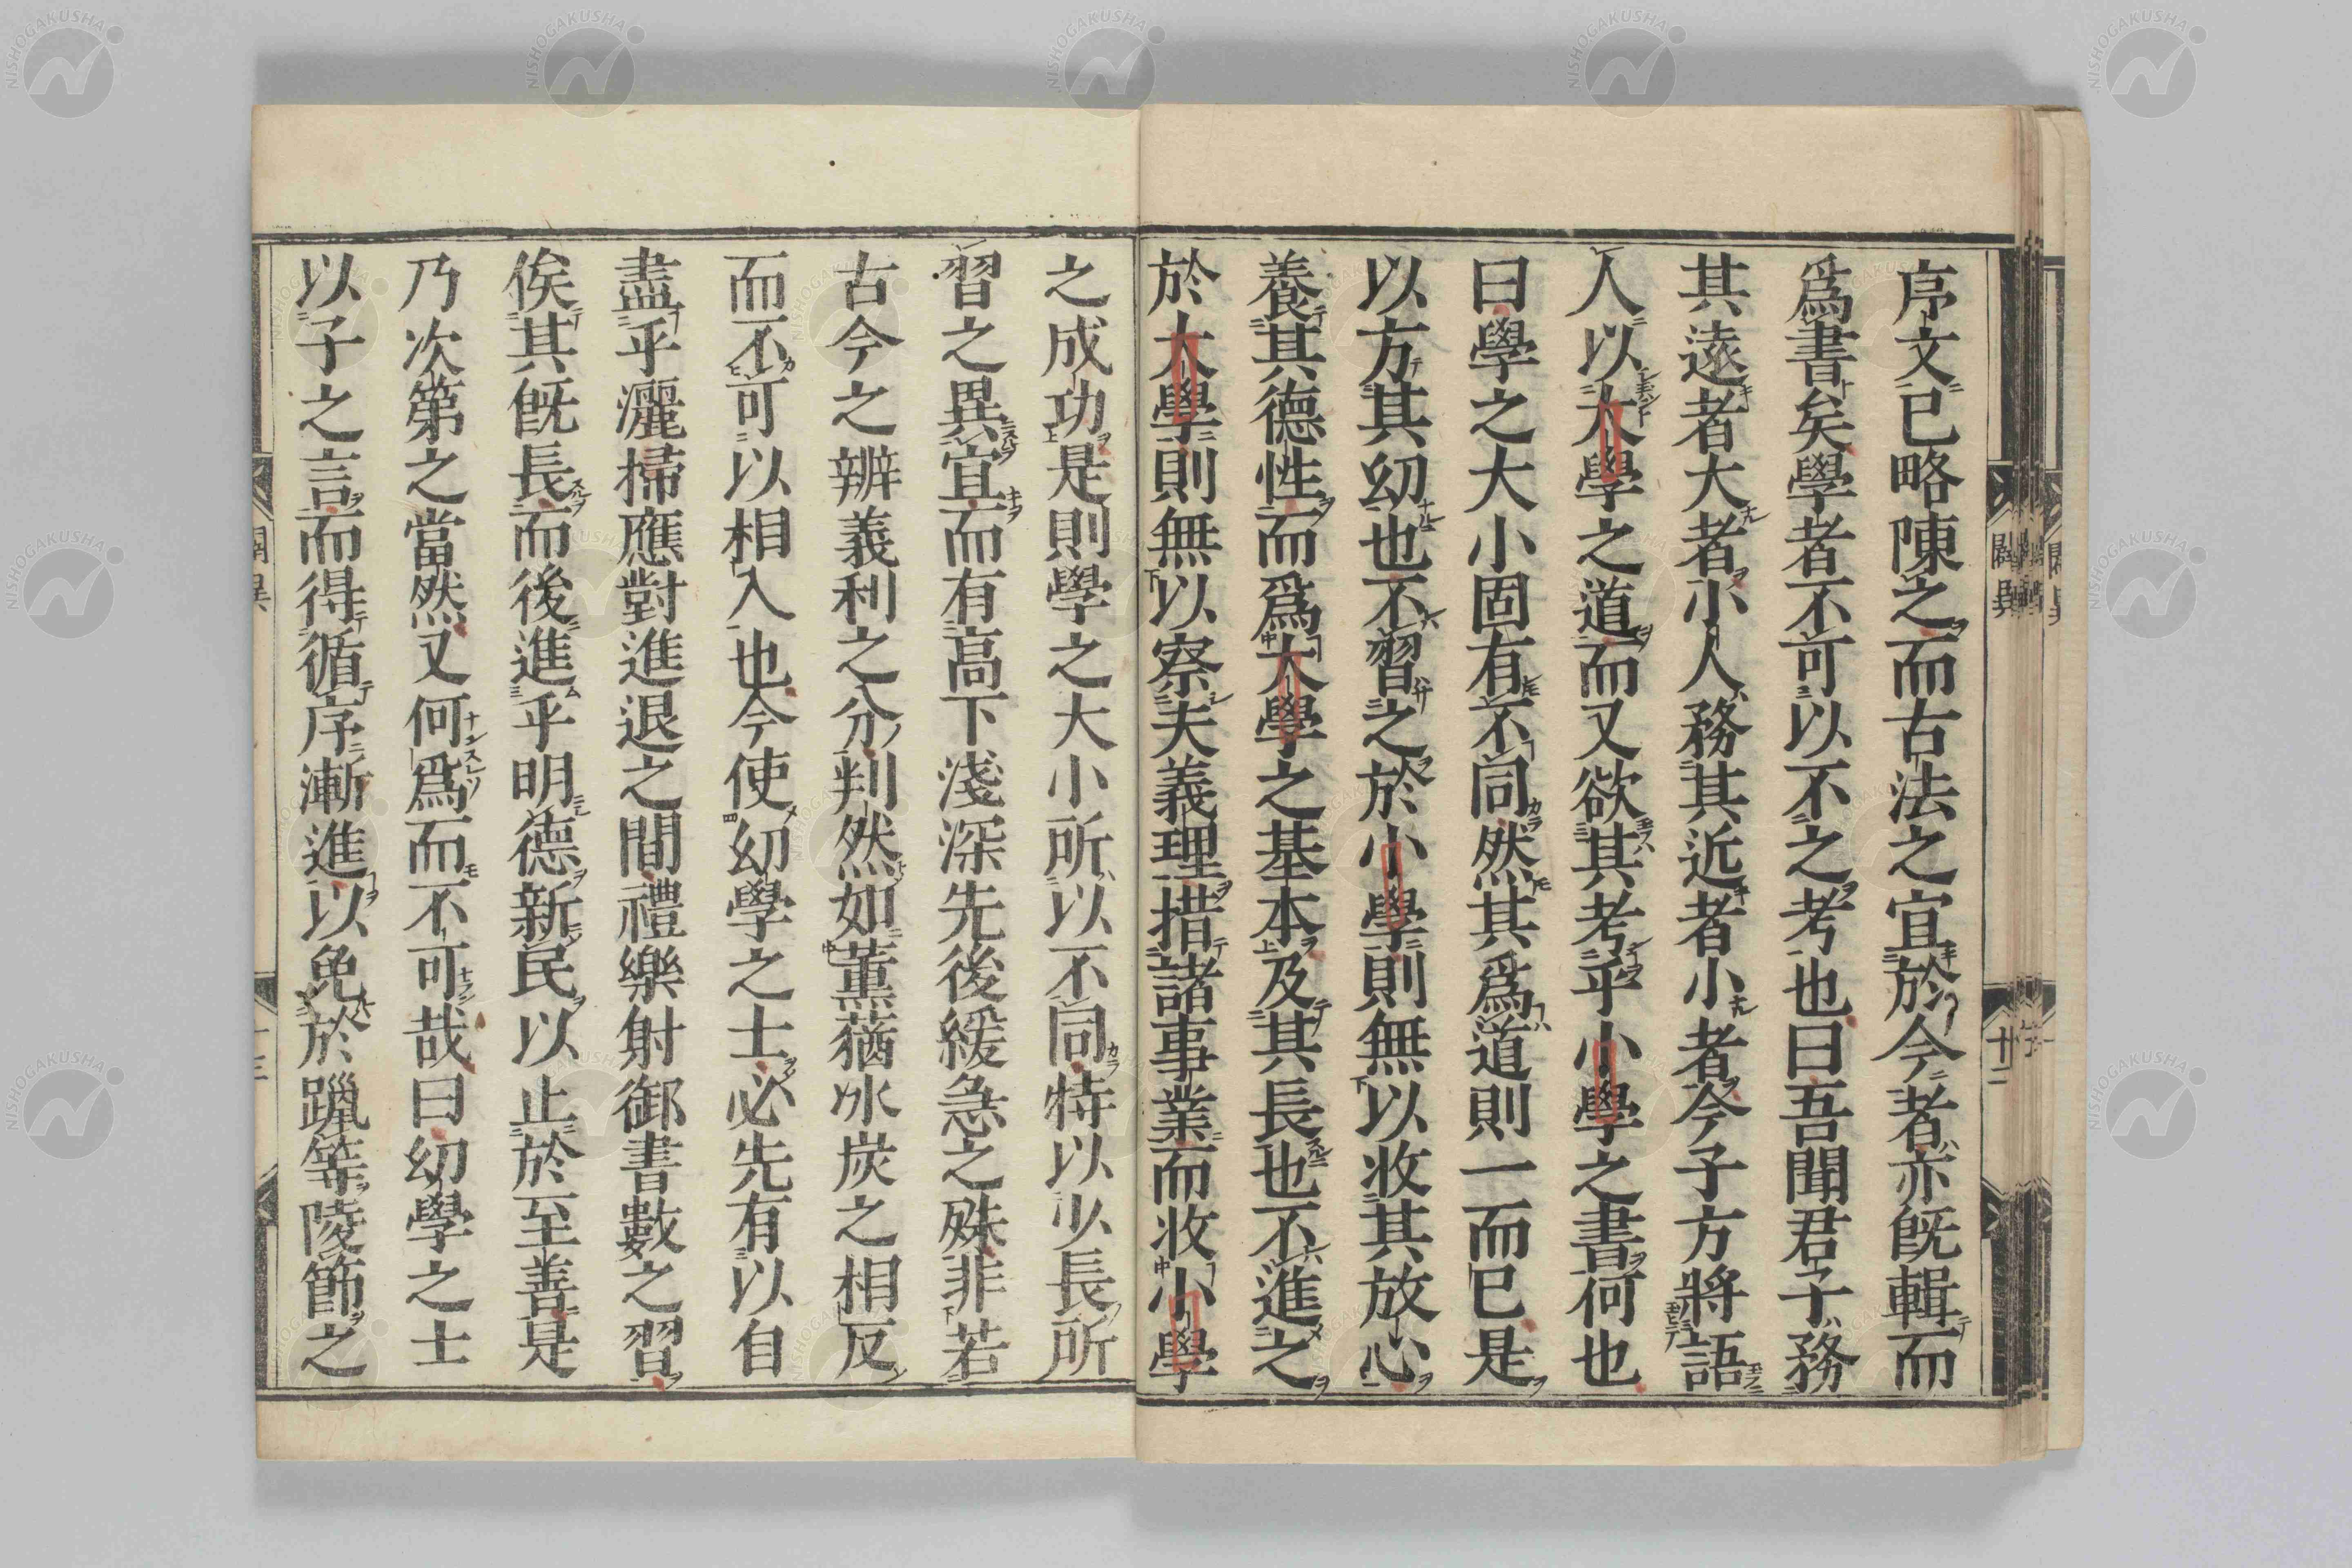 序文已略陳之而古法之宜於今者亦旣輯而
爲書矣學者不可以不之考也曰吾聞君子務
其遠者大者小人務其近者小者今子方將語
人以大學之道而又欲其考乎小學之書何也
曰學之大小固有不同然其爲道則一而已是
以方其幼也不習之於小學則無以收其放心
養其德性而爲大學之基本及其長也不進之
於大學則無以察夫義理措諸事業而收小學
之成功是則學之大小所以不同特以少長所
習之異宜而有高下淺深先後緩急之殊非若
古今之辨義利之分判然如薰蕕冰炭之相反
而不可以相入也今使幼學之士必先有以自
盡乎灑掃應對進退之間禮樂射御書數之習
俟其旣長而後進乎明德新民以止於至善是
乃次第之當然又何爲而不可哉曰幼學之士
以子之言而得循序漸進以免於躐等陵節之
闢異
十二
NISHOGAKUSHA